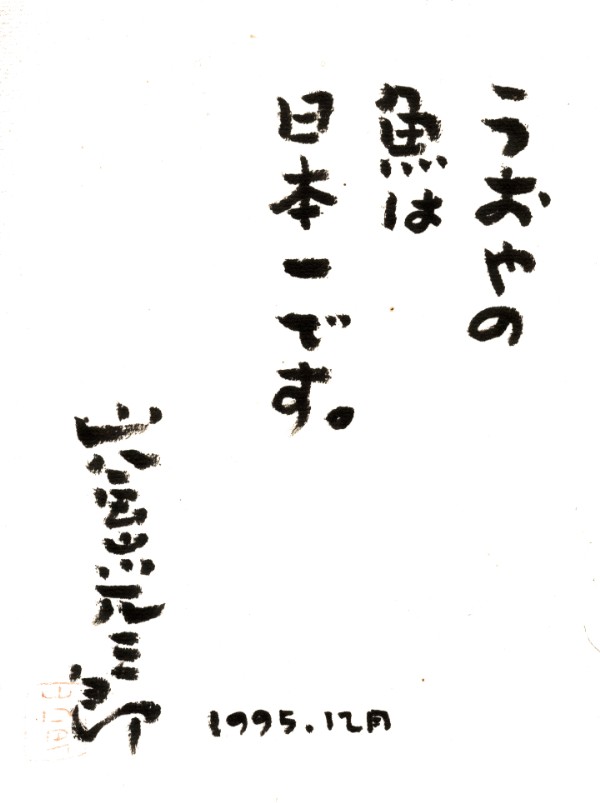 うおやの
魚は
日本一です。
六三郎
1995.12月